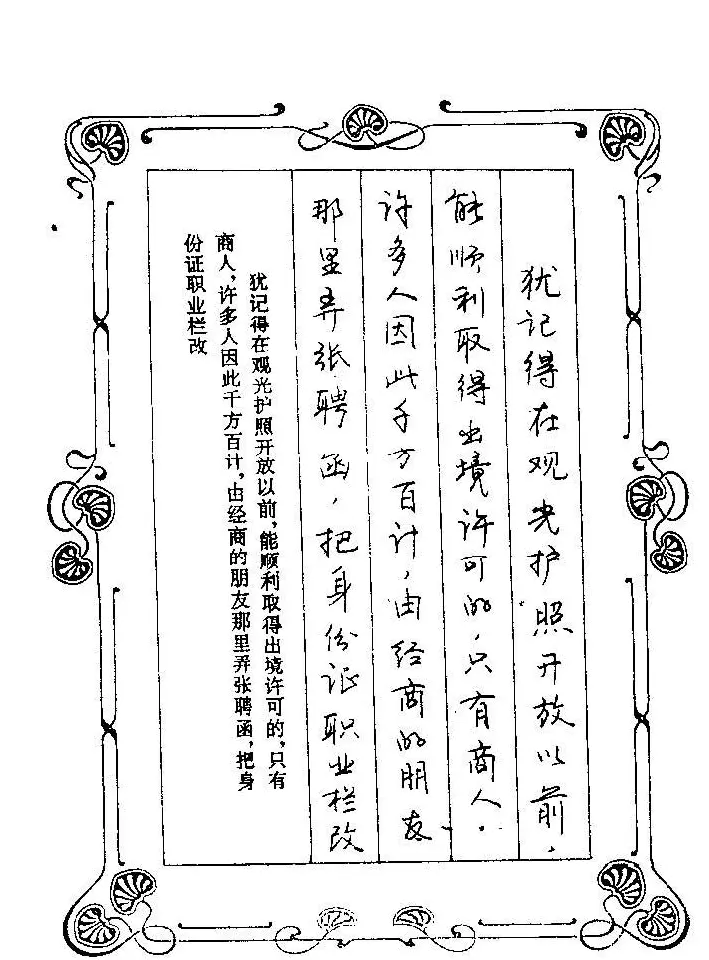 犹记得在观光护照开放以前，
能顺利取得出境许可的，只有商人。
许多人因此千方百计，由经商的朋友
那里弄张聘函，把身份证职业栏改
犹记得在观光护照开放以前，能顺利取得出境许可的，只有
商人，许多人因此千方百计，由经商的朋友那里弄张聘函，把身
份证职业栏改